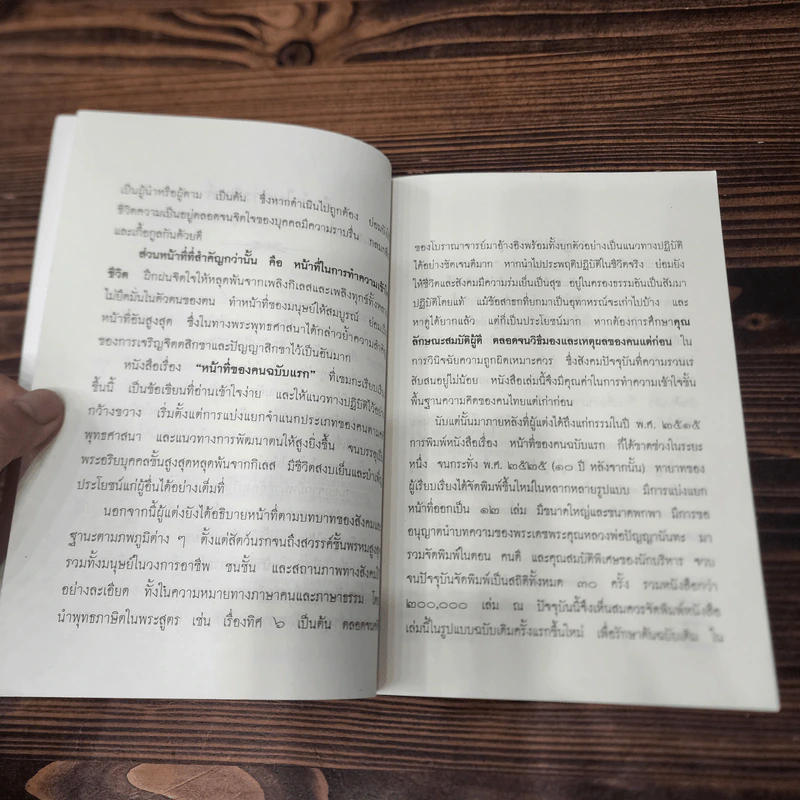 เป็นผู้นำหรือผู้ตาม เป็นต้น ซึ่งหากดำเนินไปถูกต้อง ย่อมยังให้
ชีวิตความเป็นอยู่ตลอดจนจิตใจของบุคคลมีความราบรื่น กลมเกลียว
และเกื้อกูลกันด้วยดี
ส่วนหน้าที่ที่สำคัญกว่านั้น คือ หน้าที่ในการทำความเข้าใจ
ชีวิต ฝึกฝนจิตใจให้หลุดพ้นจากเพลิงกิเลสและเพลิงทุกข์ทั้งหลาย
ไม่ยึดมั่นในตัวตนของตน ทำหน้าที่ของมนุษย์ให้สมบูรณ์ ย่อมเป็น
หน้าที่อันสูงสุด ซึ่งในทางพระพุทธศาสนาได้กล่าวย้ำความสำคัญ
ของการเจริญจิตตสิกขาและปัญญาสิกขาไว้เป็นอันมาก
หนังสือเรื่อง “หน้าที่ของคนฉบับแรก” ที่เขมกะเรียบเรียง
ขึ้นนี้ เป็นข้อเขียนที่อ่านเข้าใจง่าย และให้แนวทางปฏิบัติไว้อย่าง
กว้างขวาง เริ่มตั้งแต่การแบ่งแยกจำแนกประเภทของคนตาม
พุทธศาสนา และแนวทางการพัฒนาตนให้สูงยิ่งขึ้น จนบรรลุเป็น
พระอริยบุคคลขั้นสูงสุดหลุดพ้นจากกิเลส มีชีวิตสงบเย็นและบำเพ็ญ
ประโยชน์แก่ผู้อื่นได้อย่างเต็มที่
นอกจากนี้ผู้แต่งยังได้อธิบายหน้าที่ตามบทบาทของสังคมและ
ฐานะตามภพภูมิต่าง ๆ ตั้งแต่สัตว์นรกจนถึงสวรรค์ชั้นพรหมสูงสุด
รวมทั้งมนุษย์ในวงการอาชีพ ชนชั้น และสถานภาพทางสังคมไว้
อย่างละเอียด ทั้งในความหมายทางภาษาคนและภาษาธรรม โดย
นำพุทธภาษิตในพระสูตร เช่น เรื่องทิศ ๖ เป็นต้น ตลอดจนคติ
ของโบราณาจารย์มาอ้างอิงพร้อมทั้งยกตัวอย่างเป็นแนวทางปฏิบัติ
ได้อย่างชัดเจนดีมาก หากนำไปประพฤติปฏิบัติในชีวิตจริง ย่อมยัง
ให้ชีวิตและสังคมมีความร่มเย็นเป็นสุข อยู่ในครองธรรมอันเป็นสัมมา
ปฏิบัติโดยแท้ แม้ข้อสาธกที่ยกมาเป็นอุทาหรณ์จะเก่าไปบ้าง และ
หาดูได้ยากแล้ว แต่ก็เป็นประโยชน์มาก หากต้องการศึกษาคุณ
ลักษณะสมบัติผู้ดี ตลอดจนวิธีมองและเหตุผลของคนแต่ก่อน ใน
การวินิจฉัยความถูกผิดเหมาะควร ซึ่งสังคมปัจจุบันที่ความรวนเร
สับสนอยู่ไม่น้อย หนังสือเล่มนี้จึงมีคุณค่าในการทำความเข้าใจขั้น
พื้นฐานความคิดของคนไทยแต่เก่าก่อน
นับแต่นั้นมาภายหลังที่ผู้แต่งได้ถึงแก่กรรมในปี พ.ศ. ๒๕๑๕
การพิมพ์หนังสือเรื่อง หน้าที่ของคนฉบับแรก ก็ได้ขาดช่วงในระยะ
หนึ่ง จนกระทั่ง พ.ศ. ๒๕๒๕ (๑๐ ปี หลังจากนั้น) ทายาทของ
ผู้เรียบเรียงได้จัดพิมพ์ขึ้นใหม่ในหลากหลายรูปแบบ มีการแบ่งแยก
หน้าที่ออกเป็น ๑๒ เล่ม มีขนาดใหญ่และขนาดพกพา มีการขอ
อนุญาตนำบทความของพระเดชพระคุณหลวงพ่อปัญญานันทะ มา
รวมจัดพิมพ์ในตอน คนดี และคุณสมบัติพิเศษของนักบริหาร จวบ
จนปัจจุบันจัดพิมพ์เป็นสถิติทั้งหมด ๓๐ ครั้ง รวมหนังสือกว่า
๒๐๐,๐๐๐ เล่ม ณ ปัจจุบันนี้จึงเห็นสมควรจัดพิมพ์หนังสือ
เล่มนี้ในรูปแบบฉบับเดิมครั้งแรกขึ้นใหม่ เพื่อรักษาต้นฉบับเดิม ใน